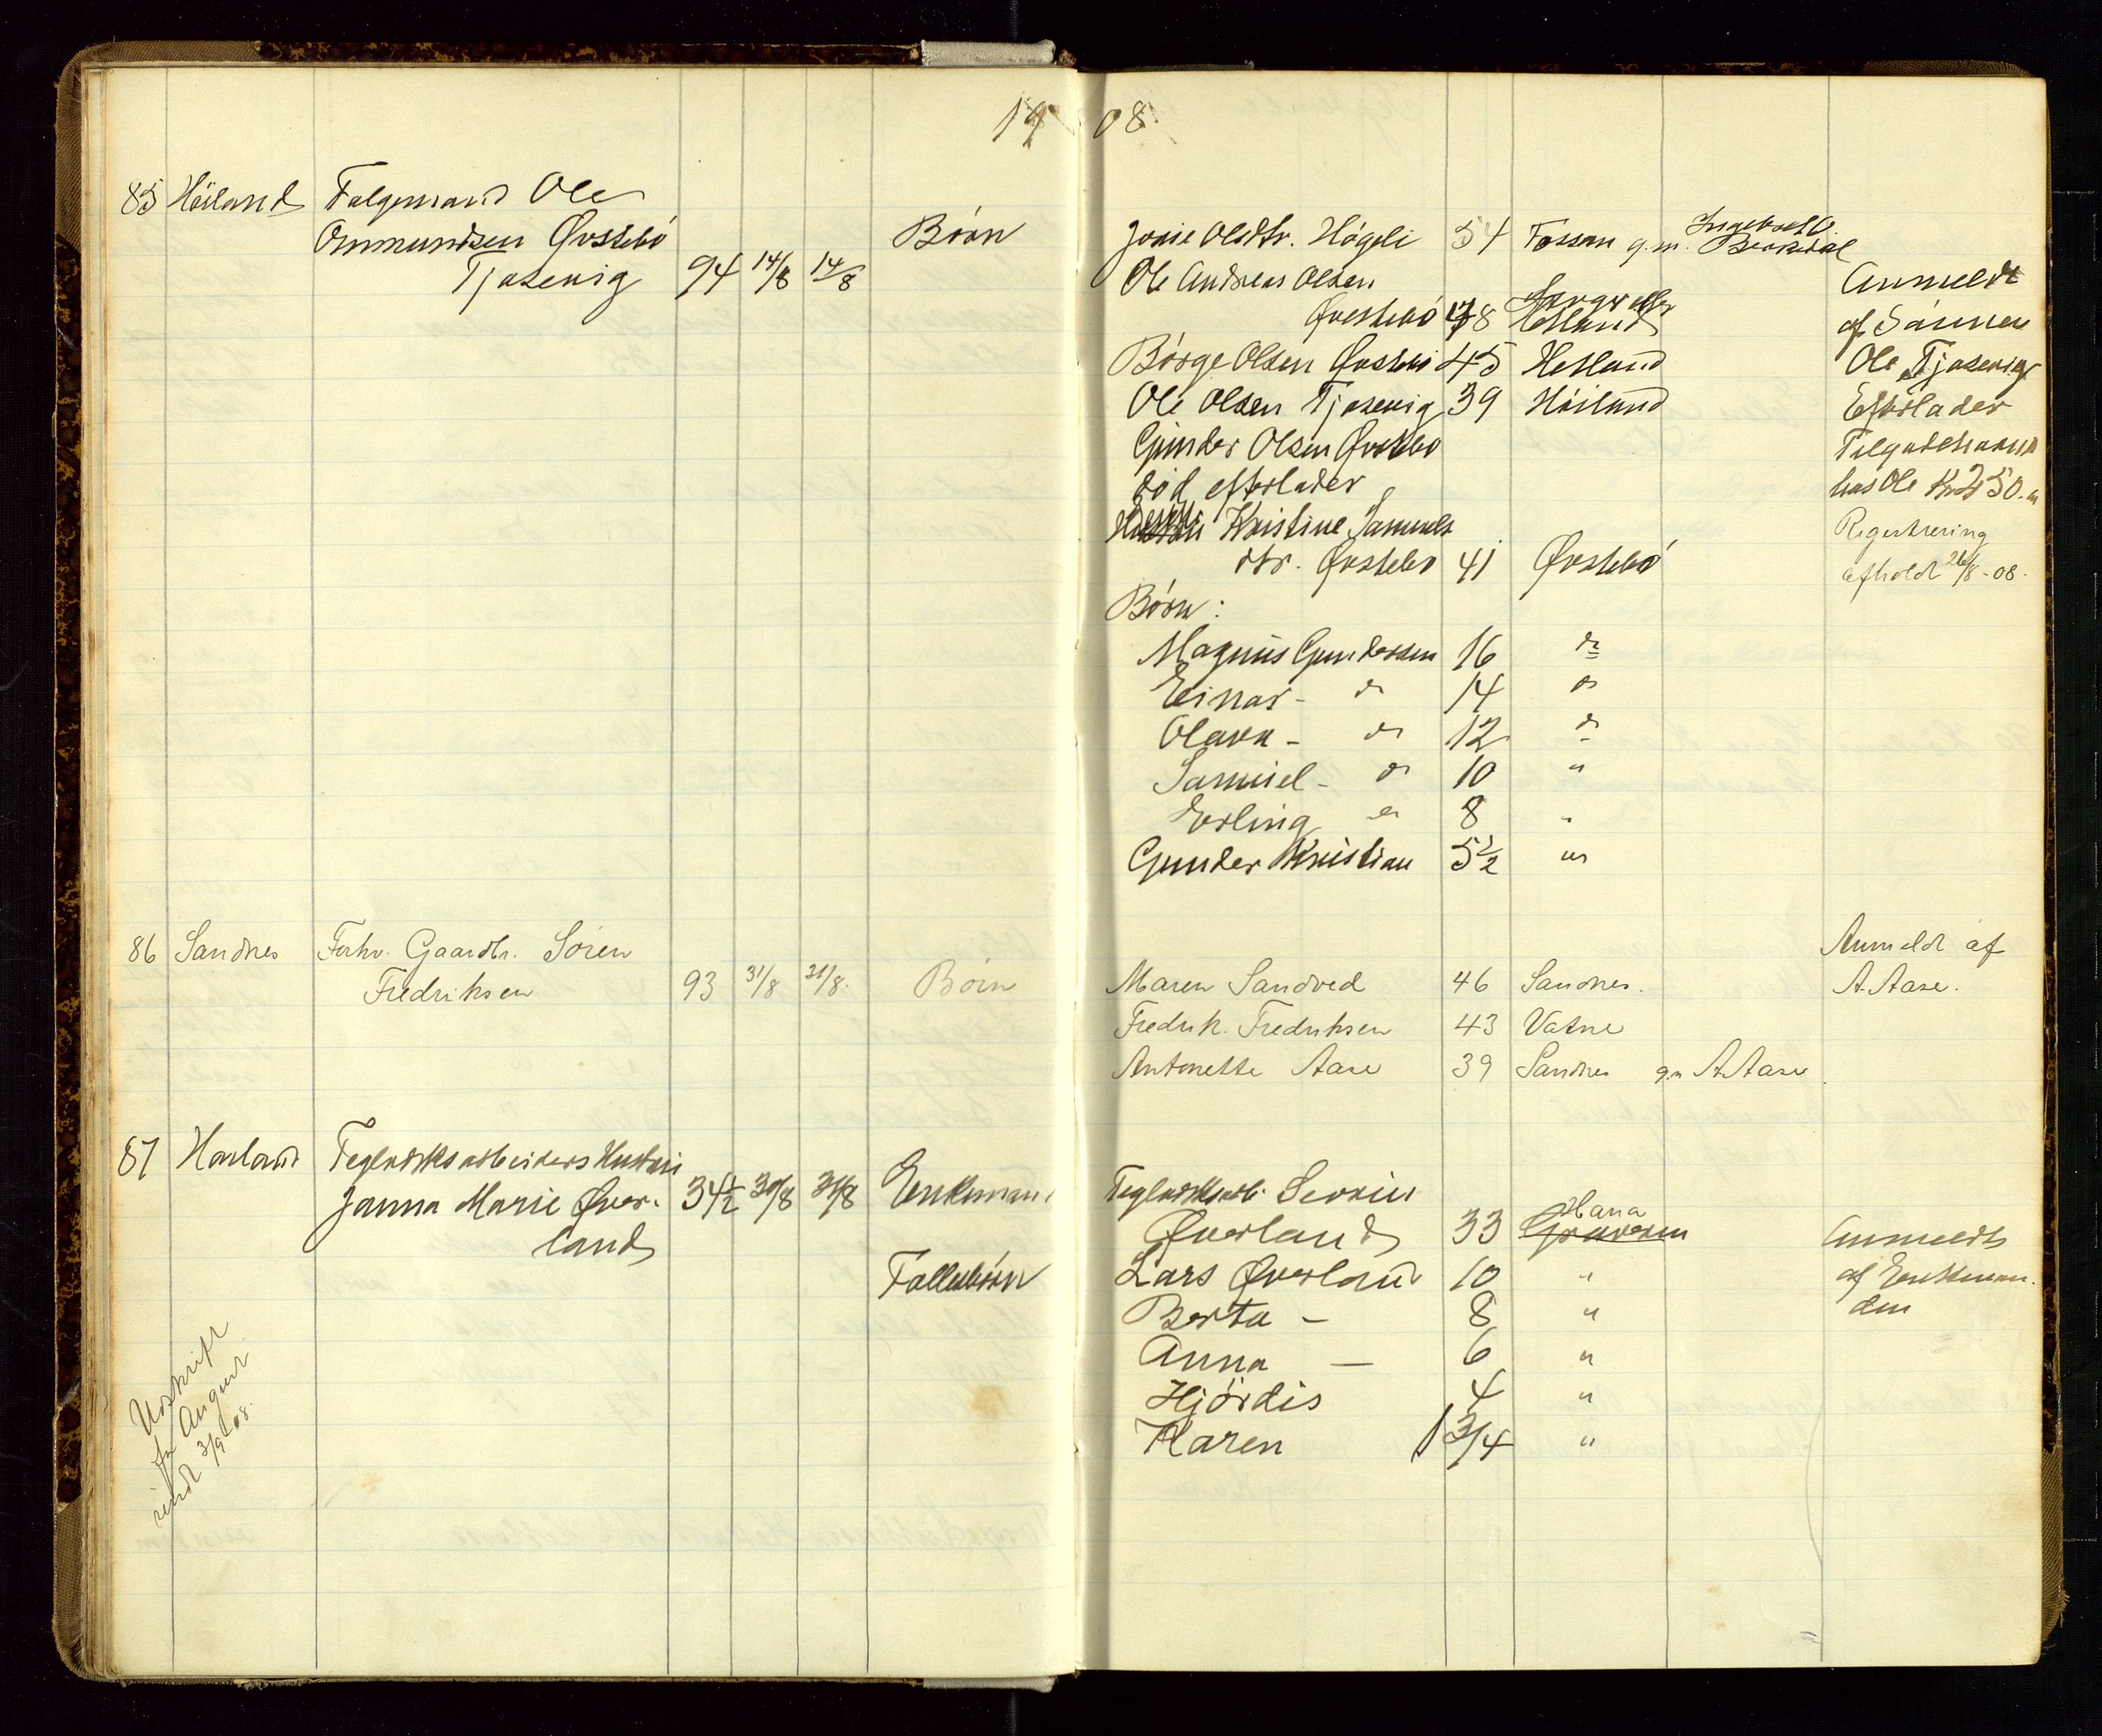 1908.
85 Höiland Folgemand Ole
Ommundsen Øvstebö
Tjosevig 94 14/8 14/8 Börn
Olsdtr. Högeli 54 Fossan g.m. Ingebret O.
Ole Andreas Olsen
Øvstebö 48 Hetland
Börge Olsen Øvstebö 45 Hetland
Ole Olsen Tjosevig 39 Höiland
Gunder Olsen Øvstebö
död efterlader
Kristine Samuels
dtr. Øvstebö 41 Øvstebö
Börn:
Magnus Gundersen 16 do
Einar - do 14 do
Olava - do 12 do
Samuel - do 10 "
Erling do 8 "
Gunder Kristian 5 1/2 "
Anmeldt
af Sönnen
Ole Tjosevig
Efterlader
hos Ole Kr 250.
Registrering
afholdt 26/8-08.
86 Sandnes Forhv. Gaardbr. Sören
Fredriksen 93 31/8 31/8. Börn
Maren Sandved 46 Sandnes.
Fredrik. Fredriksen 43 Vatne
Antonette Aase 39 Sandnes g.m A Aase
Anmeldt af
A. Aase.
87 Haaland Teglværksarbeiders Hustru
Janna Marie Øver-
land 34 1/2 30/8 31/8 Enkemand
Teglværksarb. Sevrin
Øverland 33 Hana
Fællesbörn Lars Øverland 10 "
Berta - 8 "
Anna - 6 "
Hjördis 4 "
Karen 1 3/4 "
Anmeldt
af Enkeman-
den
Udskrift
for August
indt 3/9 08.